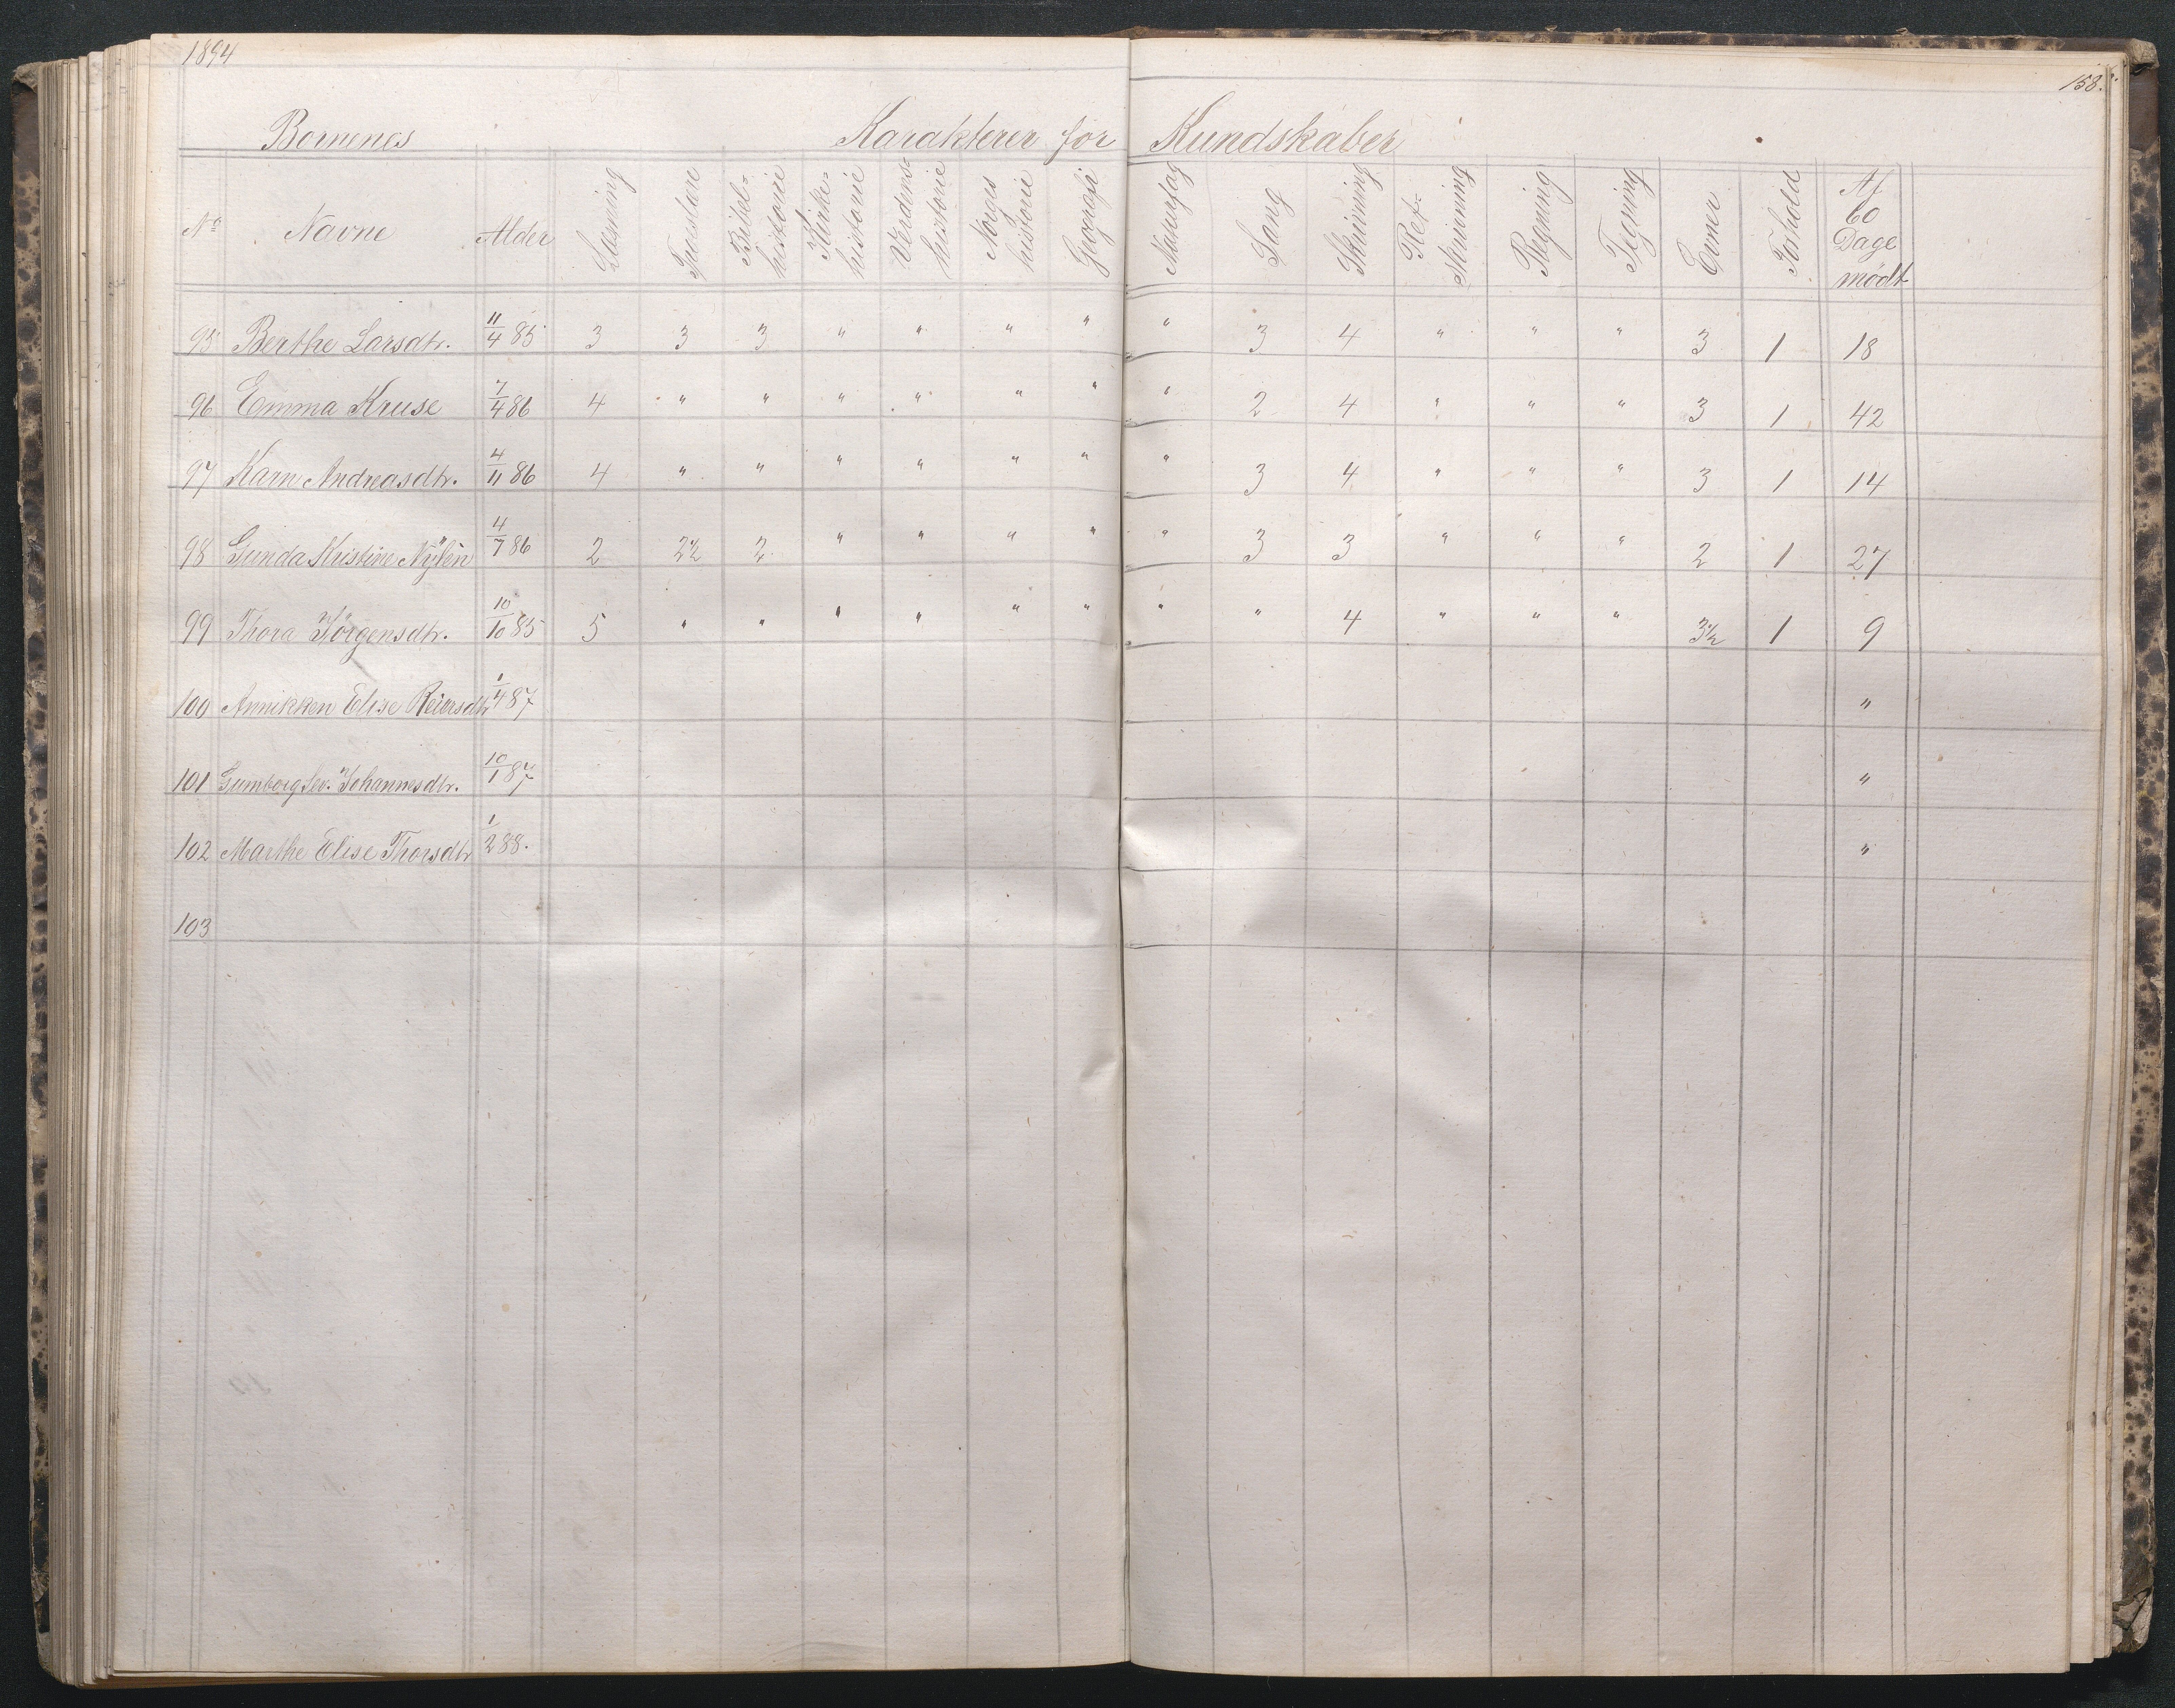 1894
158.
Børnenes Karakterer for Kundskaber
No Navne Alder Læsning Troeslære Bibelhistorie Kirkehistorie Verdenshistorie Norges historie Geografi Naturfag Sang Skrivning Retskrivning Regning Tegning Evner Forhold Af 60 Dage mødt
95 Berthe Larsdtr. 11/4 85 3 3 3 " " " " " 3 4 " " " 3 1 18
96 Emma Kruse 7/4 86 4 " " " " " " " 2 4 " " " 3 1 42
97 Karn Andreasdtr. 4/11 86 4 " " " " " " " 3 4 " " " 3 1 14
98 Gunda Kristine Nylèn 4/7 86 2 2½ 2 " " " " " 3 3 " " " 2 1 27
99 Thora Jörgensdtr. 10/10 85 5 " " " " " " " " 4 " " " 3½ 1 9
100 Annikken Elise Reiersdtr 1/4 87 "
101 Gumborg Johannesdtr. 10/1 87 "
102 Marthe Elise Thorsdtr 1/2 88. "
103